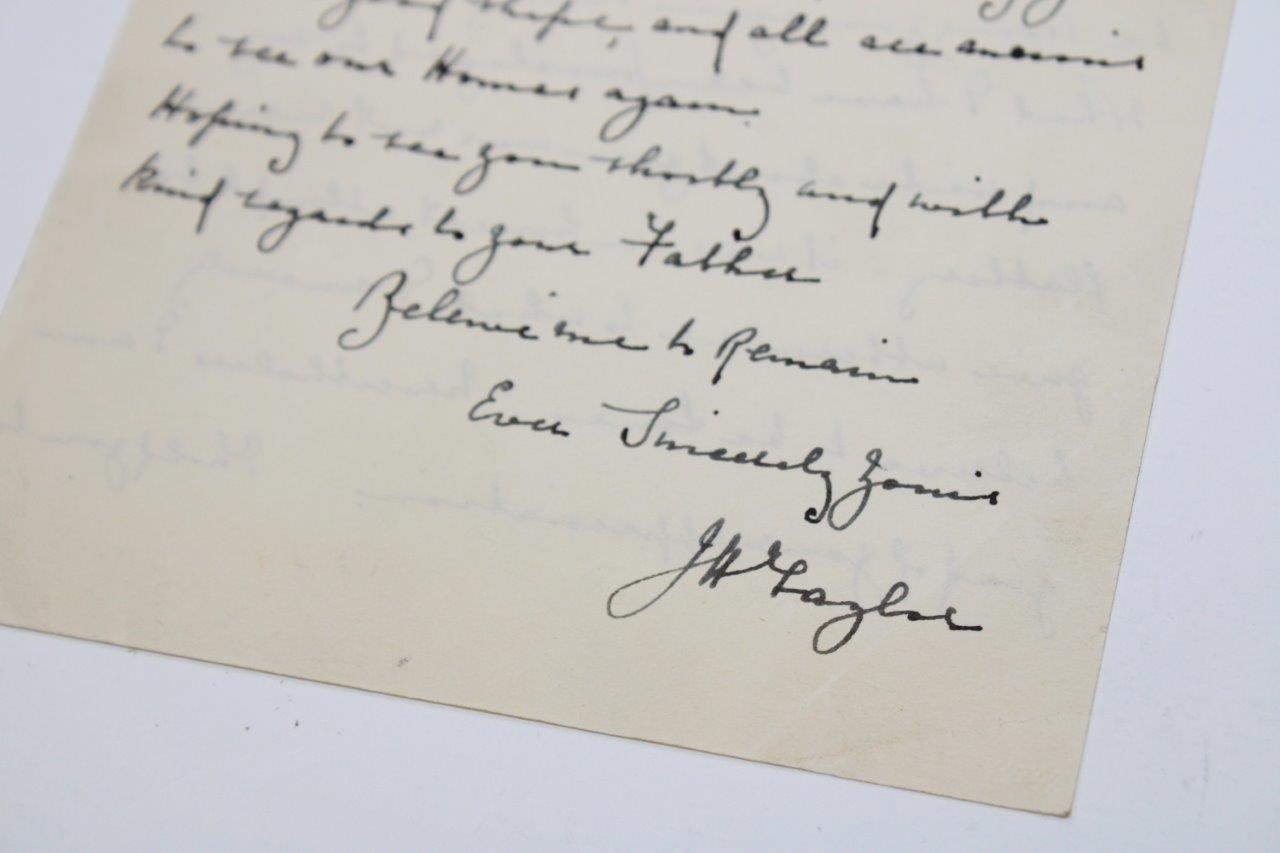 good shape, and all are anxious
to see our Homes again.
Hoping to see you shortly and with
kind regards to your Father
Believe me to Remain
Ever Sincerely Yours
JH Taylor